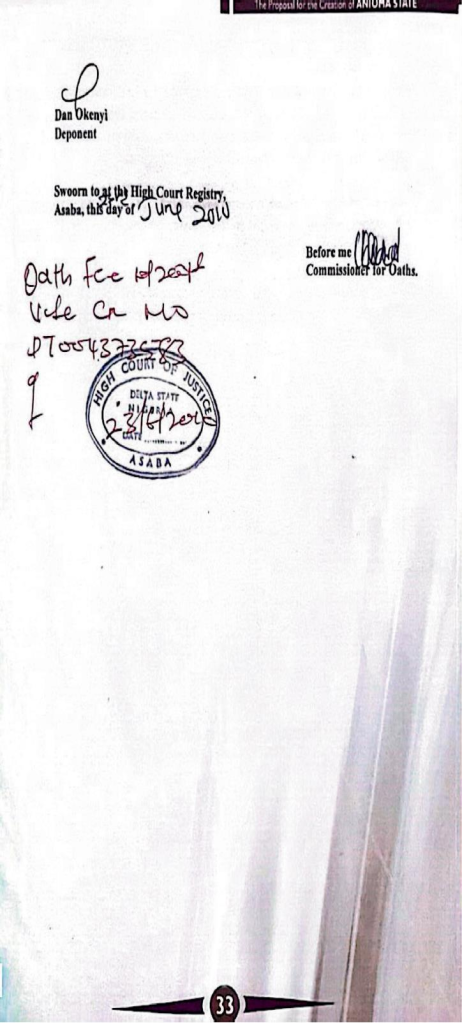 The Proposal for the Creation of ANIOMA STATE
Dan Okenyi
Deponent
Swoorn to at the High Court Registry,
Asaba, this day of June 2010
Before me
Commissioner for Oaths.
Oath Fee
Vide Cr No
HIGH COURT OF JUSTICE
DELTA STATE
NIGERIA
23/6/2010
DATE
ASABA
33